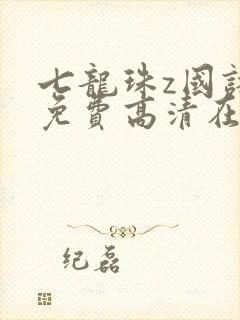 七龍珠z國
免費高清在
纪磊